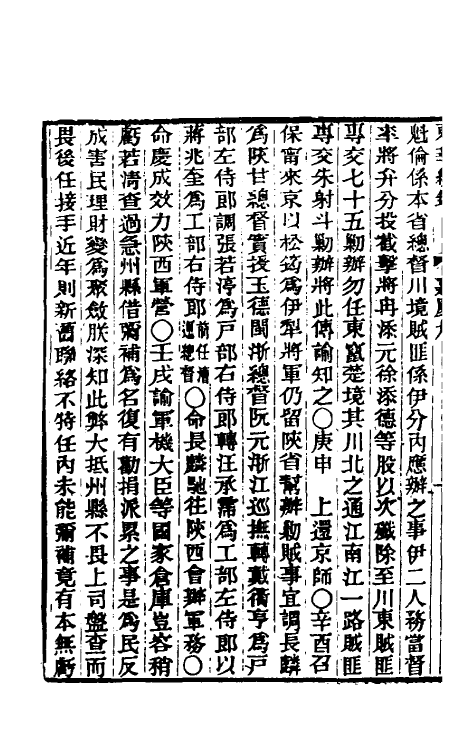 魁倫係本省總督川境賊匪係伊分內應辦之事伊二人務當督
率將弁分投截擊將冉添元徐添德等股以次殲除至川東賊匪
專交七十五勦辦勿任東竄楚境其川北之通江南江一路賊匪
專交朱射斗勦辦將此傳諭知之○庚申　上還京師○辛酉召
保寧來京以松筠為伊犂將軍仍留陝省幫辦勦賊事宜調長麟
為陝甘總督實授玉德閩浙總督阮元浙江巡撫轉戴衢亨為戶
部左侍郎調張若渟為戶部右侍郎轉汪承霈為工部左侍郎以
蔣兆奎為工部右侍郎前任漕運總督○命長麟馳往陝西會辦軍務○
命慶成效力陝西軍營○壬戌諭軍機大臣等國家倉庫豈容稍
虧若清查過急州縣借彌補為名復有勸捐派累之事是為民反
成害民理財變為聚斂朕深知此弊大抵州縣不畏上司盤查而
畏後任接手近年則新舊聯絡不特任內未能彌補竟有本無虧